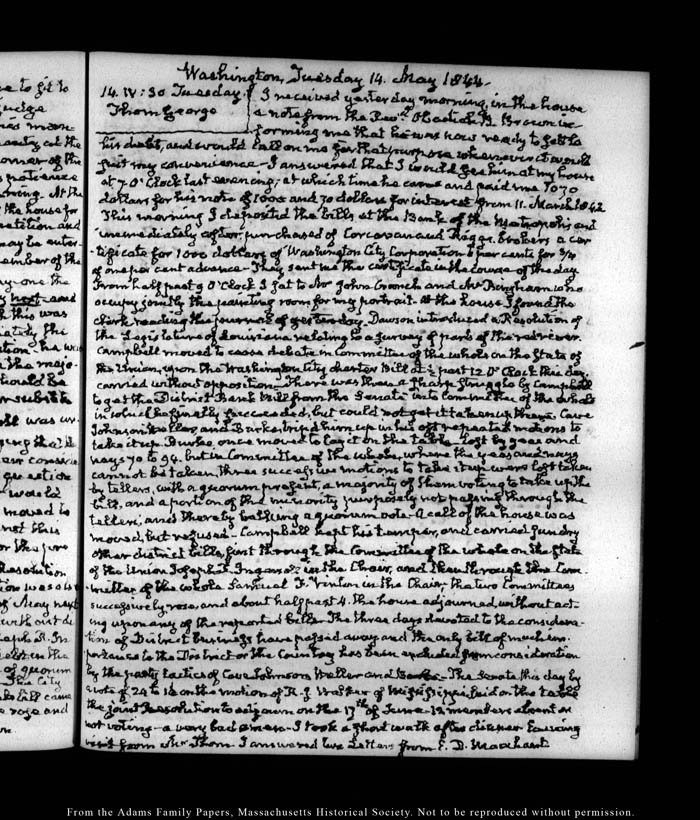 Washington, Tuesday 14. May 1844.
14. IV:30 Tuesday
Thom George
I received yesterday morning, in the house
a note from the Revd. Obadiah B. Brown in-
forming me that he was now ready to settle
his debt, and would call on me for that purpose whenever it would
suit my convenience - I answered that I would see him at my house
at 7. O'Clock last evening; at which time he came and paid me 1070
dollars for his note of 1000 and 70 dollars for interest from 11. March 1842
This morning I deposited the bills at the Bank of the Metropolis and
immediately after, purchased of Corcoran and Riggs, brokers a cer-
tificate for 1000 dollars of Washington City Corporation 6 per cents for 3/4
of one per cent advance - They sent me the certificate in the course of the day
From half past 9 O'Clock I sat to Mr John Cranch and Mr Bingham who
occupy jointly the painting room for my portrait. At the house I found the
Clerk reading the journal of yesterday. Dawson introduced a Resolution of
the Legislature of Louisiana relating to a survey of parts of the red river.
Campbell moved to cease debate in Committee of the whole on the State of
the Union, upon the Washington City charter Bill at 1/2 past 12 O'Clock this day,
carried without opposition - There was then a sharp struggle by Campbell
to get the District Bank bill from the Senate into Committee of the whole
in which he finally succeeded, but could not get it taken up there. Cave
Johnson, Weller, and Burke, tripp'd him up in his oft repeated motions to
take it up. Burke once moved to lay it on the table - lost by yeas and
nays 70 to 94. but in Committee of the whole, where the yeas and nays
cannot be taken, three successive motions to take it up were lost taken
by tellers, with a quorum present, a majority of them voting to take up the
bill, and a portion of the minority purposely not passing through the
tellers, and thereby balking a quorum vote. A call of the house was
moved, but refused - Campbell kept his temper, and carried sundry
other district bills, first through the Committee of the whole on the State
of the Union Joseph R. Ingersoll in the Chair, and then through the Com-
mittee of the whole Samuel F. Vinton in the Chair, the two Committees
successively rose, and about half past 4. the house adjourned without act-
ing upon any of the reported bills. The three days devoted to the considera-
tion of District business have passed away and the only bill of much im-
portance to the District or the Country has been excluded from consideration
by the party tactics of Cave Johnson, Weller and Burke - The Senate this day by
a vote of 24 to 16 on the motion of R. J. Walker of Mississippi laid on the table
the joint Resolution to adjourn on the 17th of June - 12 members absent or
not voting - a very bad omen - I took a short walk after dinner. Evening
visit from Mr Thom. I answered two Letters from E. D. Marchant
From the Adams Family Papers, Massachusetts Historical Society. Not to be reproduced without permission.